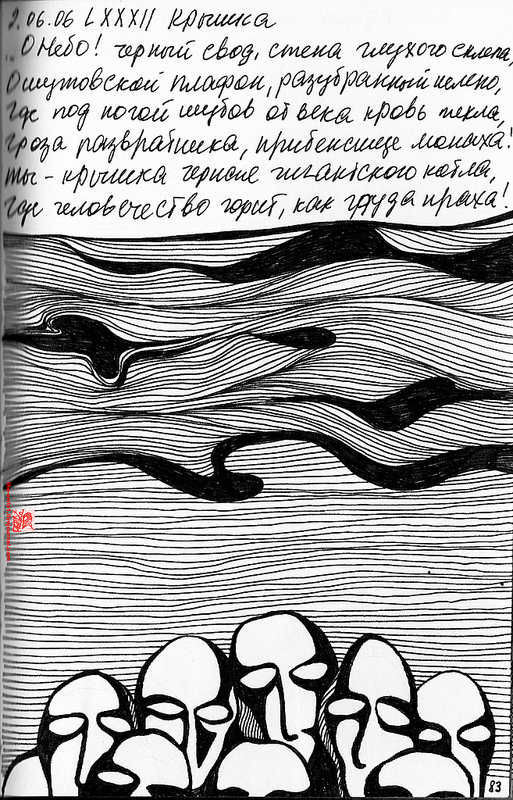 2.06.06 LXXXII Крышка
"О Небо! черный свод, стена глухого склепа,
О шутовской плафон, разубранный нелепо,
Где под ногой шутов от века кровь текла,
Гроза развратника, прибежище монаха!
Ты - крышка черная гигантского котла,
Где человечество горит, как груда праха!
83